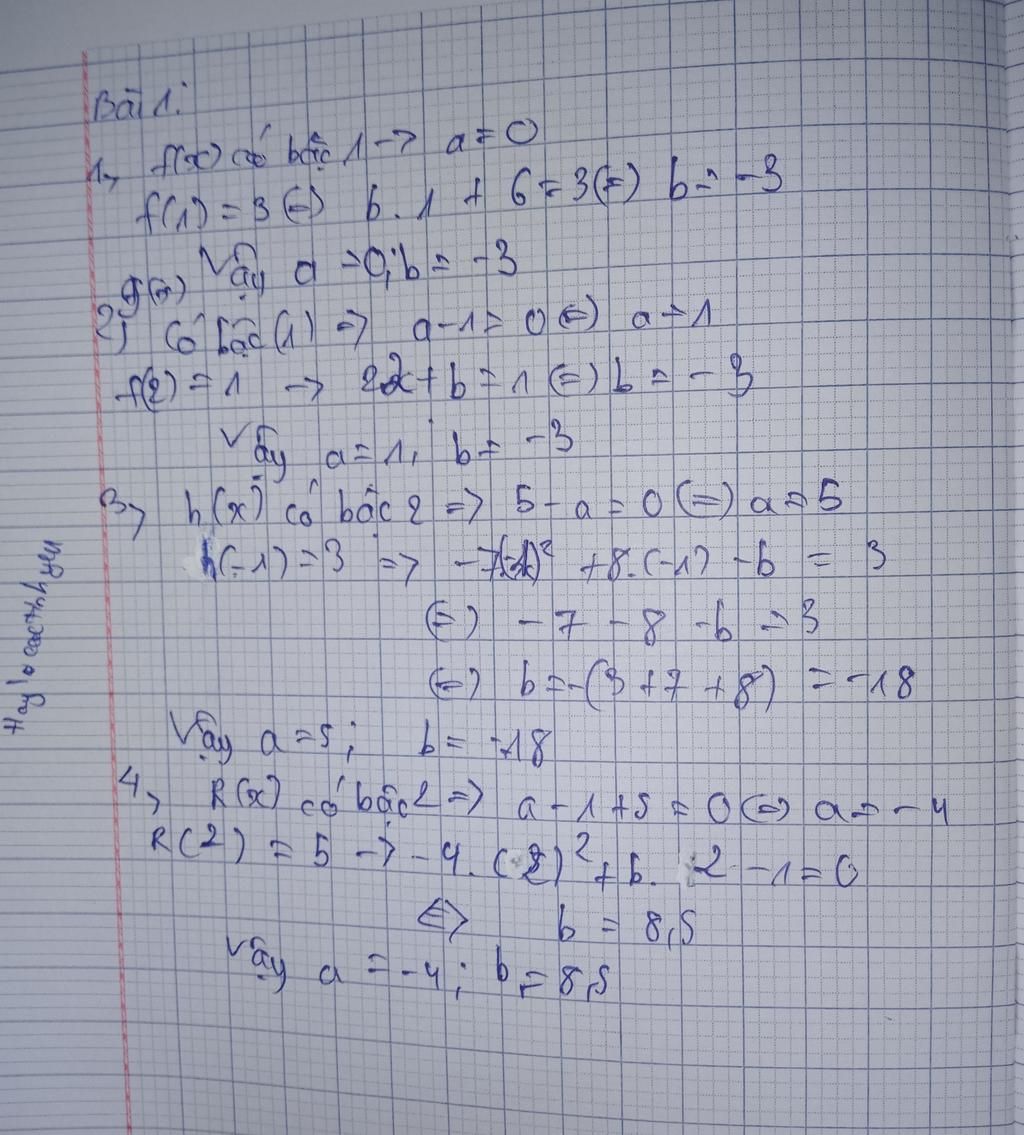 Bài 1:
1, f(x) có bậc 1 → a = 0
f(1) = 3 (=) b. 1 + 6 = 3 (=) b = -3
Vậy a = 0; b = -3
g(x)
2, Có bậc (1) => a - 1 = 0 (=) a = 1
f(2) = 1 → 2.2 + b = 1 (=) b = -3
Vậy a = 1; b = -3
3, h(x) có bậc 2 => 5 - a = 0 (=) a = 5
h(-1) = 3 => -7(-1)² + 8.(-1) - b = 3
(=) -7 - 8 - b = 3
(=) b = -(3 + 7 + 8) = -18
Vậy a = 5; b = -18
4, R(x) có bậc 2 => a - 1 + 5 = 0 (=) a = -4
R(2) = 5 → -4. (2)² + b. 2 - 1 = 0
<=> b = 8,5
Vậy a = -4; b = 8,5